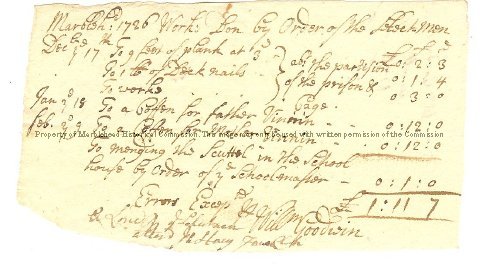 Marbleh:d 1726 Work Don by Order of the Select Men
Dec br ye 17th To 9 feet of plank at 3d
To 1 lb of Deck nails } abt the partision 0: 2: 3
To work of the prison & 0: 1: 4
Cage 0: 3: 0
Jan 18 To a Coffen for father Vinnin 0: 12: 0
Feb. To a Coffen for Vinnin 0: 12: 0
Property of Marblehead Historical Commission. The image can only be used with written permission of the Commission
To mending the Scuttel in the School
house by order of ye Schoolmaster 0: 1: 0
Errors Excep:d 1: 11 7
Will:m Goodwin